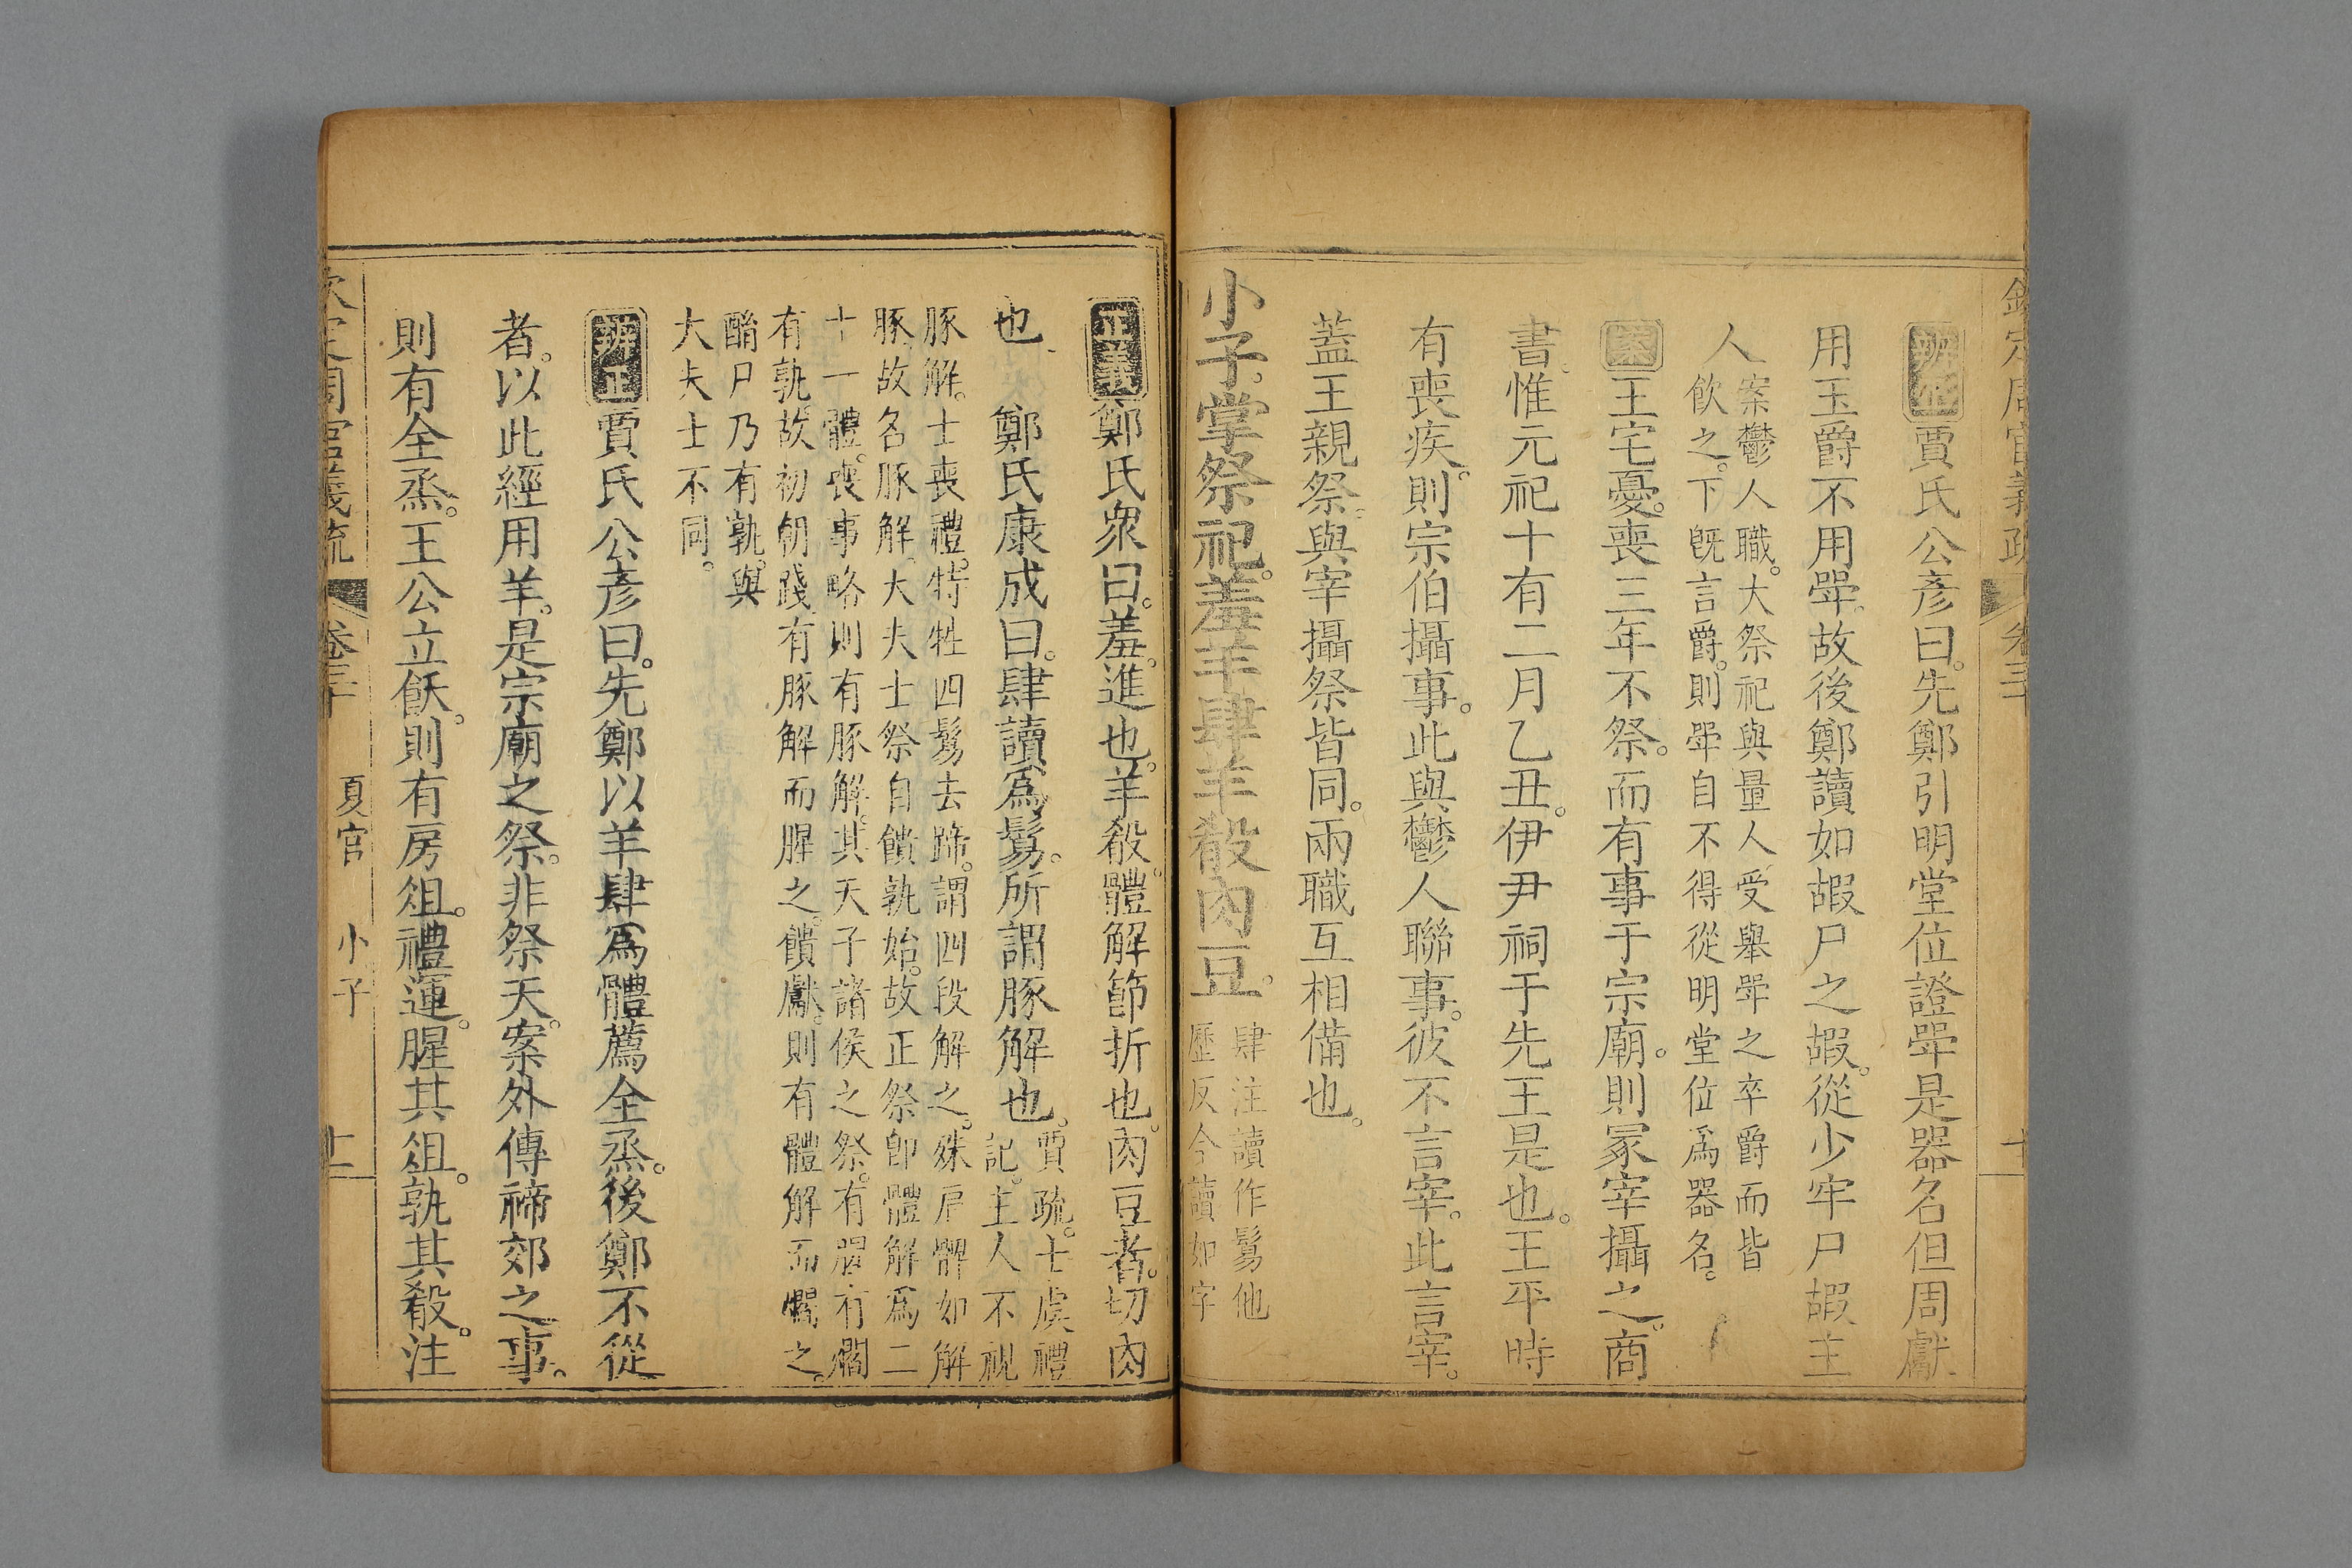 欽定周官義疏 卷三十 十
辨正賈氏公彥曰。先鄭引明堂位證斝是器名但周獻
用玉爵不用斝。故後鄭讀如嘏尸之嘏。從少牢尸嘏主
人
案鬱人職。大祭祀與量人受舉斝之卒爵而皆
飲之。下旣言爵。則斝自不得從明堂位爲器名。
案王宅憂。喪三年不祭。而有事于宗廟。則冢宰攝之。商
書。惟元祀十有二月乙丑。伊尹祠于先王是也。王平時
有喪疾。則宗伯攝事。此與鬱人聯事。彼不言宰。此言宰。
蓋王親祭。與宰攝祭皆同。兩職互相備也。
小子。掌祭祀。羞羊肆羊殽肉豆。
肆注讀作鬄他
歷反今讀如字
正義鄭氏衆曰。羞。進也。羊殽。體解節折也。肉豆者。切肉
也。 鄭氏康成曰。肆讀爲鬄。所謂豚解也。
賈疏。士虞禮
記。主人不視
豚解。士喪禮。特牲四鬄去蹄。謂四段解之。殊肩髀如解
豚。故名豚解。大夫士祭自饋孰始。故正祭卽體解爲二
十一體。喪事略則有豚解。其天子諸侯之祭。有腥有爓
有孰。故初朝踐有豚解而腥之。饋獻。則有體解而爓之。
酳尸乃有孰。與
大夫士不同。
辨正賈氏公彥曰。先鄭以羊肆爲體薦全烝。後鄭不從
者。以此經用羊。是宗廟之祭。非祭天。案外傳禘郊之事。
則有全烝。王公立飫。則有房俎。禮運。腥其俎。孰其殽。注
欽定周官義疏 卷三十 夏官 小子 十一